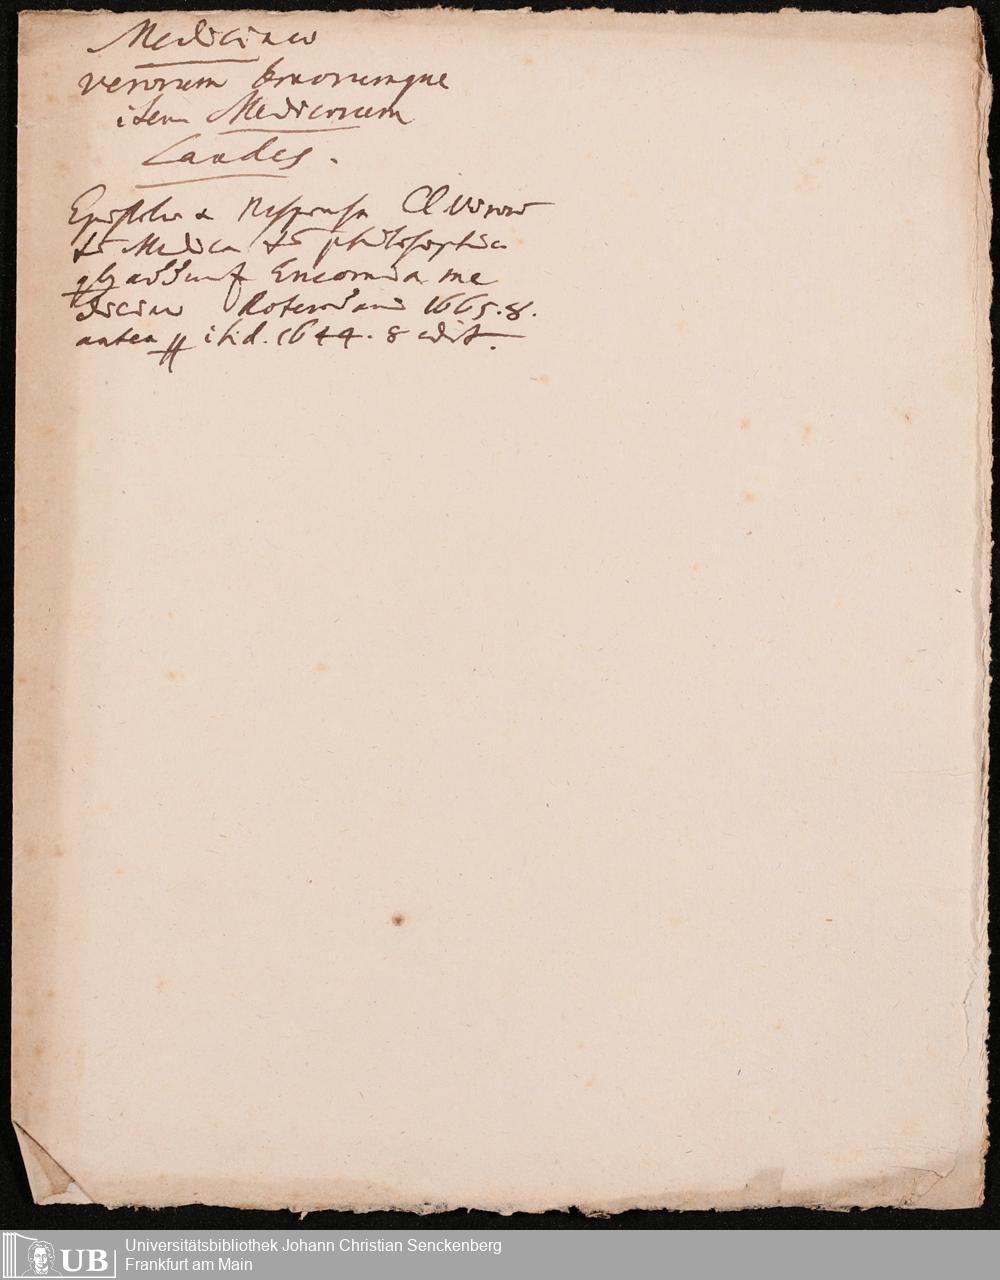 Medicinae
verorum bonorumque
item Medicorum
Laudes.
Epistolae & Responsa Cl. Viror
tū Medica tū philosophica
qbg adsunf Encomia me
dicinae Roterodami 1665. 8.
antea ibid. 1644. 8 edit.
Universitätsbibliothek Johann Christian Senckenberg
Frankfurt am Main
UB